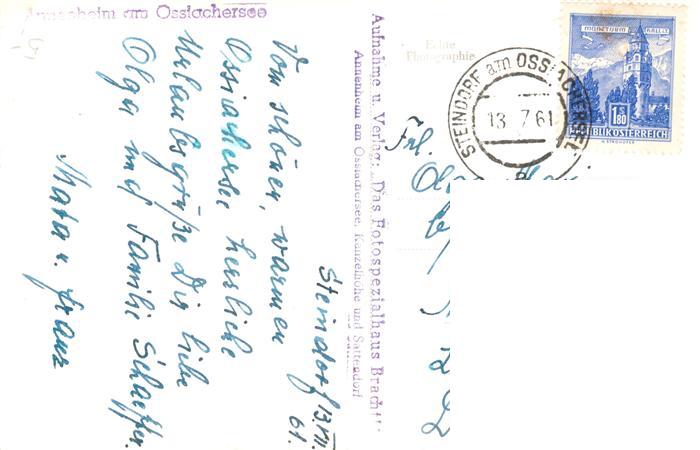 Annenheim am Ossiachersee
Steindorf 13.VII.
61.
Vom schönen, warmen
Ossiachersee herzliche
Urlaubsgrüße Dir liebe
Olga und Familie Schaeffer.
u. Franz
Aufnahme u. Verlag: „Das Fotospezialhaus
Annenheim am Ossiachersee, Kanzelhöhe und Sattendorf
Echte
Photographie
STEINDORF am OSSIACHERSEE
13. 7. 61
MÜNZTURM HALL I.T.
S 1.80
REPUBLIK ÖSTERREICH
Frl.
Olga